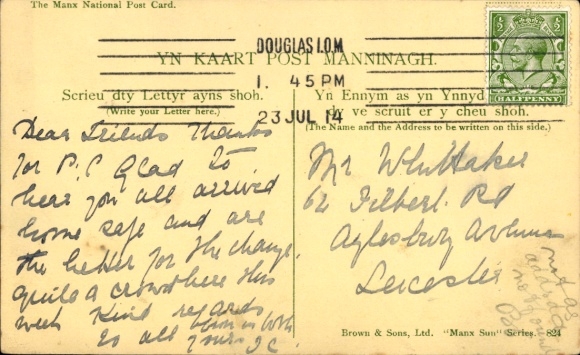 The Manx National Post Card.
DOUGLAS I.O.M
1. 45 PM
23 JUL 14
HALFPENNY
YN KAART POST MANNINAGH.
Scrieu dty Lettyr ayns shoh.
(Write your Letter here.)
Dear Friends Thanks
for P.C Glad to
hear you all arrived
home safe and are
the better for the change.
quite a crowd here this
week Kind regards
to all
Yours J C
Yn Ennym as yn Ynnyd
dy ve scruit er y cheu shoh.
(The Name and the Address to be written on this side.)
Mr Whittaker
62 Filbert Rd
Aylesbury Avenue
Leicester
not as
Brown & Sons, Ltd. "Manx Sun" Series. 824